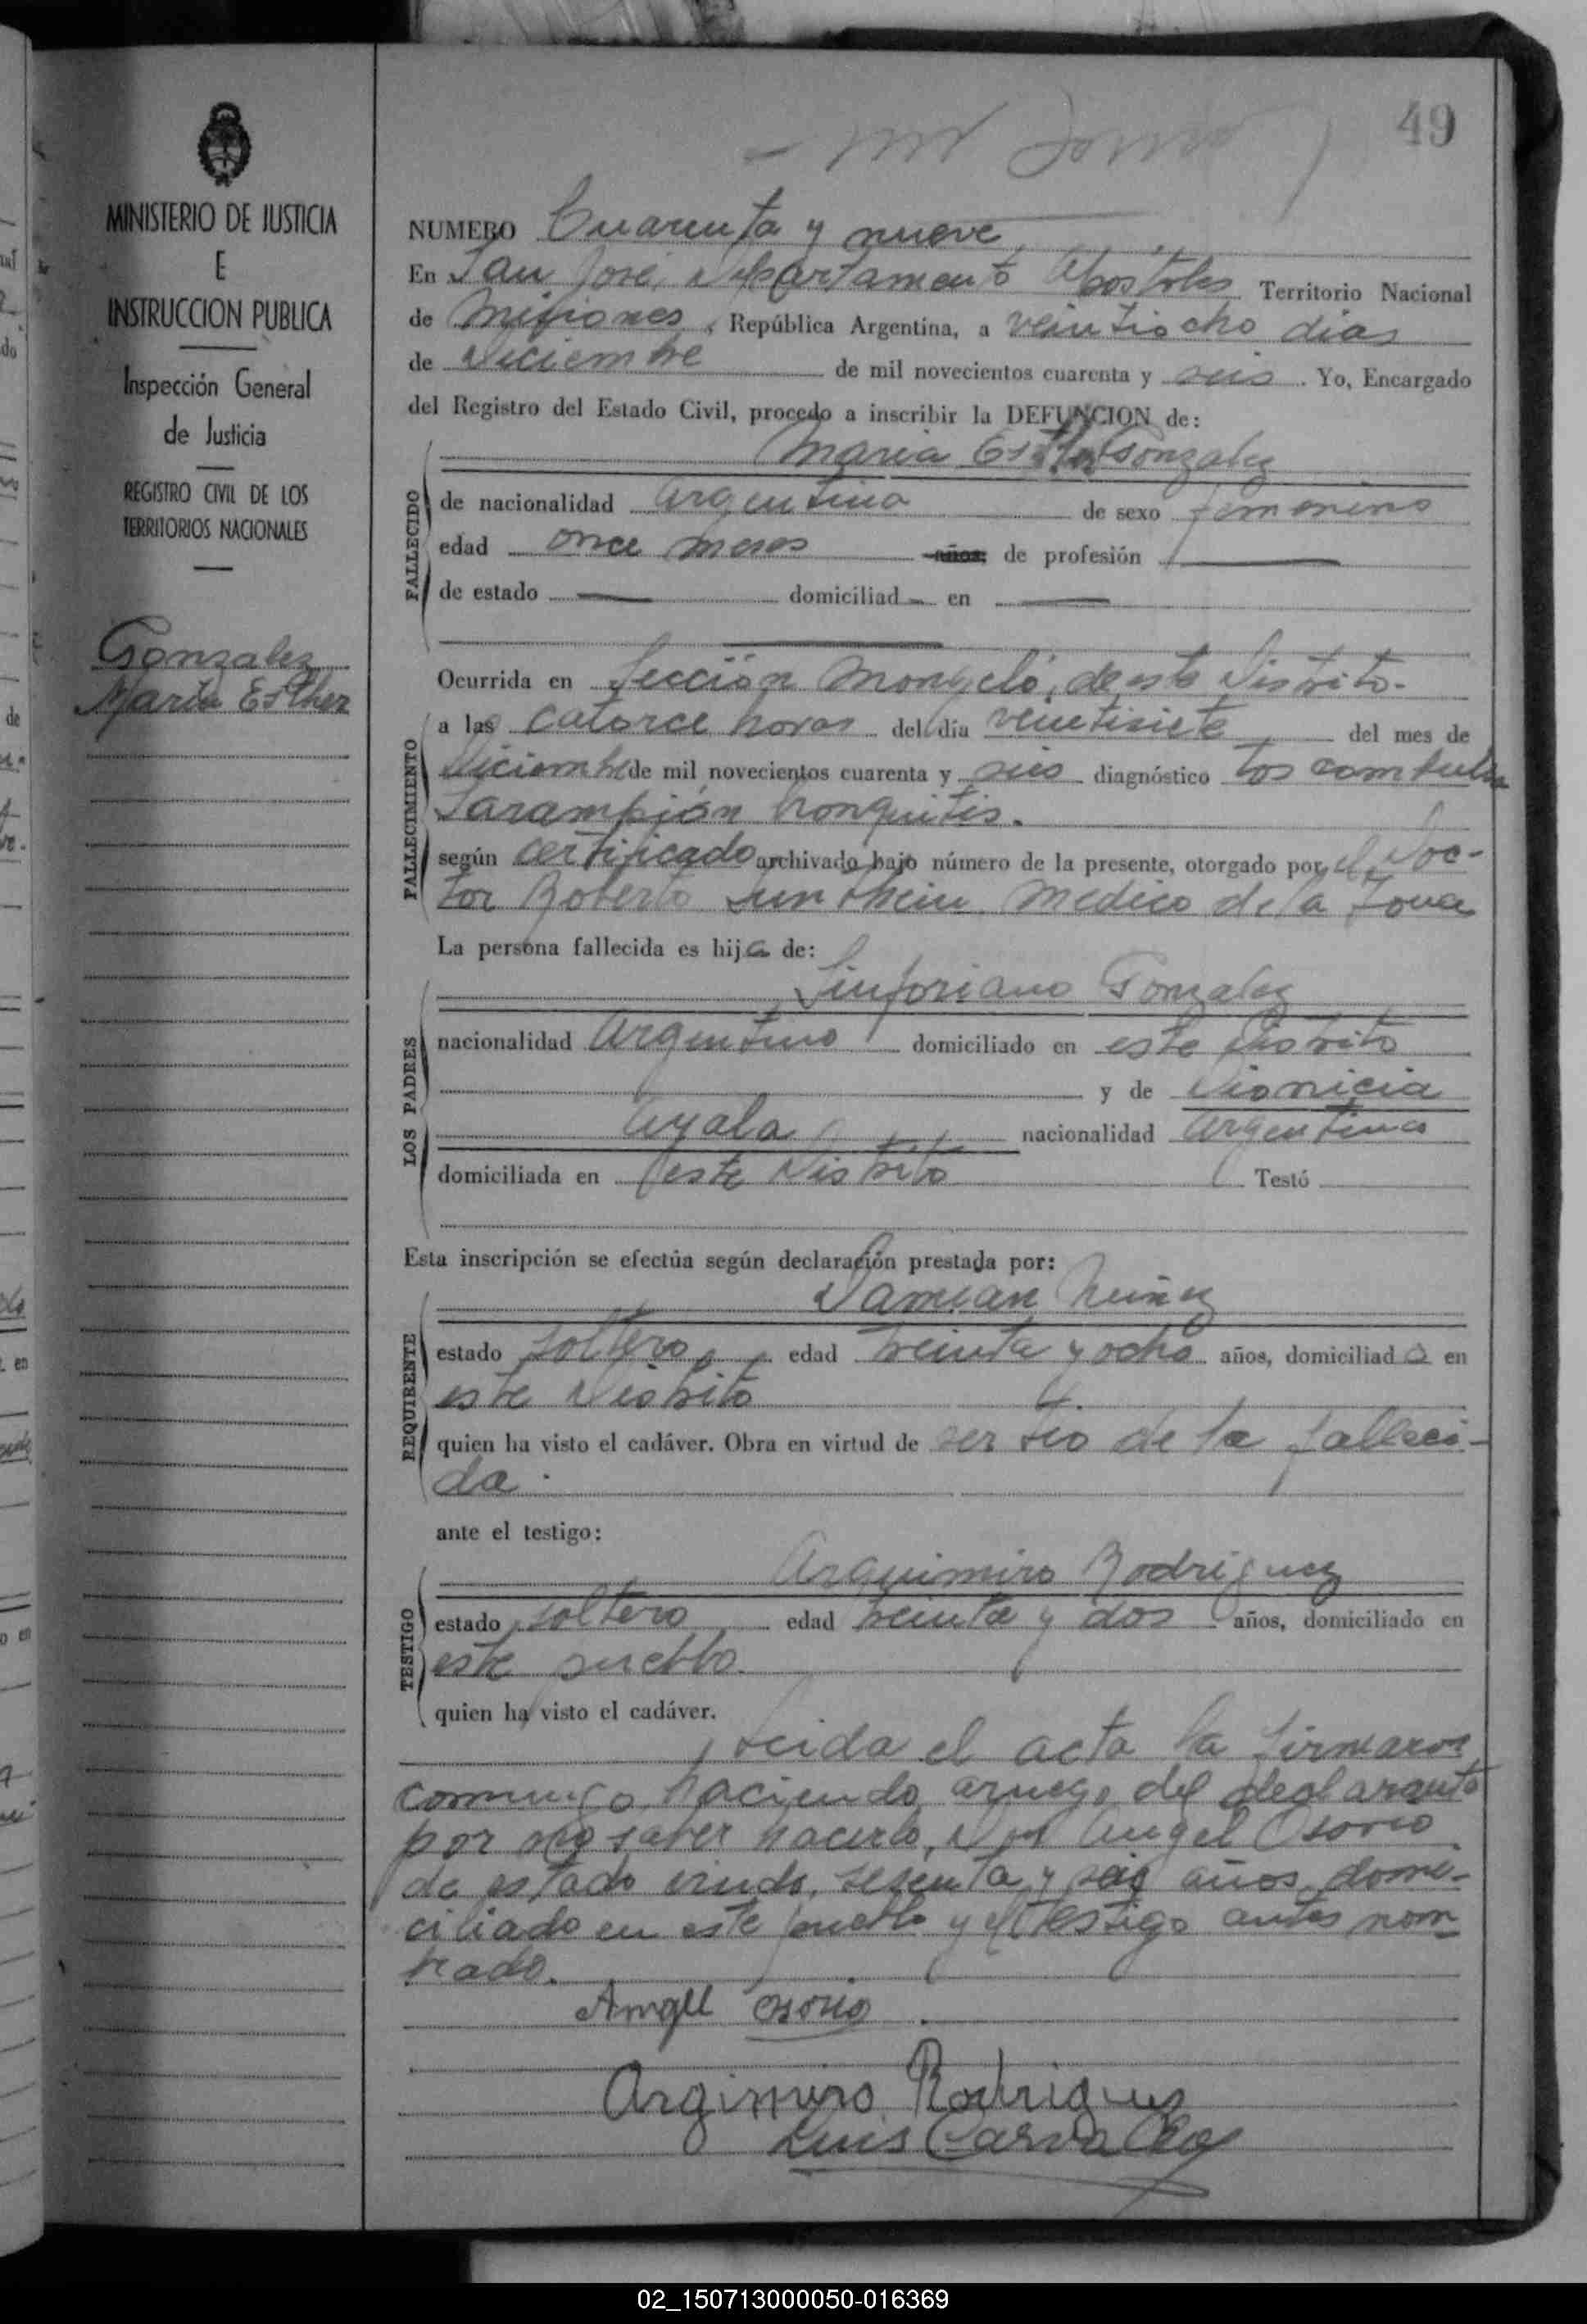 49
MINISTERIO DE JUSTICIA
E
INSTRUCCION PUBLICA
Inspección General
de Justicia
REGISTRO CIVIL DE LOS
TERRITORIOS NACIONALES
Gonzalez
Maria Esther
NUMERO Cuarenta y nueve
En San José, Departamento Apóstoles Territorio Nacional
de Misiones, República Argentina, a veintiocho dias
de Diciembre de mil novecientos cuarenta y seis. Yo, Encargado
del Registro del Estado Civil, procedo a inscribir la DEFUNCION de:
Maria Esther Gonzalez
FALLECIDO
de nacionalidad Argentina de sexo femenino
edad once meses años; de profesión
de estado domiciliad en
Ocurrida en Sección Mongeló, de este Distrito.
FALLECIMIENTO
a las catorce horas del día veintisiete del mes de
Diciembre de mil novecientos cuarenta y seis diagnóstico tos combulsa
Sarampión bronquitis.
según certificado archivado bajo número de la presente, otorgado por el Doc-
tor Roberto medico de la zona
La persona fallecida es hija de:
LOS PADRES
Sinforiano Gonzalez
nacionalidad Argentino domiciliado en este Distrito
y de Dionicia
Ayala nacionalidad Argentina
domiciliada en este Distrito Testó
Esta inscripción se efectúa según declaración prestada por:
REQUIRENTE
Damian Nuñez
estado soltero, edad treinta y ocho años, domiciliado en
este Distrito
quien ha visto el cadáver. Obra en virtud de ser tio de la falleci-
da.
ante el testigo:
TESTIGO
Arquimiro Rodriguez
estado soltero edad treinta y dos años, domiciliado en
este pueblo.
quien ha visto el cadáver.
Leida el acta la firmaron
conmigo, haciendo aruego del declarante
por no saber hacerlo, Don Angel Osorio
de estado viudo, sesenta y seis años, domi-
ciliado en este pueblo y el testigo antes nom
brado.
Angel Osorio
Argimiro Rodrigues
Luis Carvalho
02_150713000050-016369